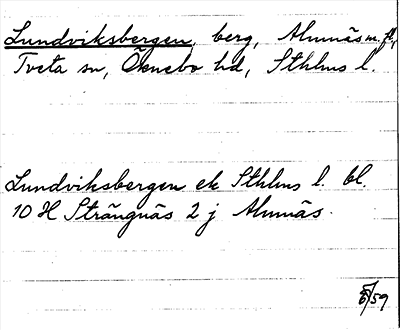 Lundviksbergen, berg, Almnäs m. fl.,
Tveta sn, Öknebo hd, Sthlms l.
Lundviksbergen ek Sthlms l. bl.
10 H Strängnäs 2 j Almnäs.
/59